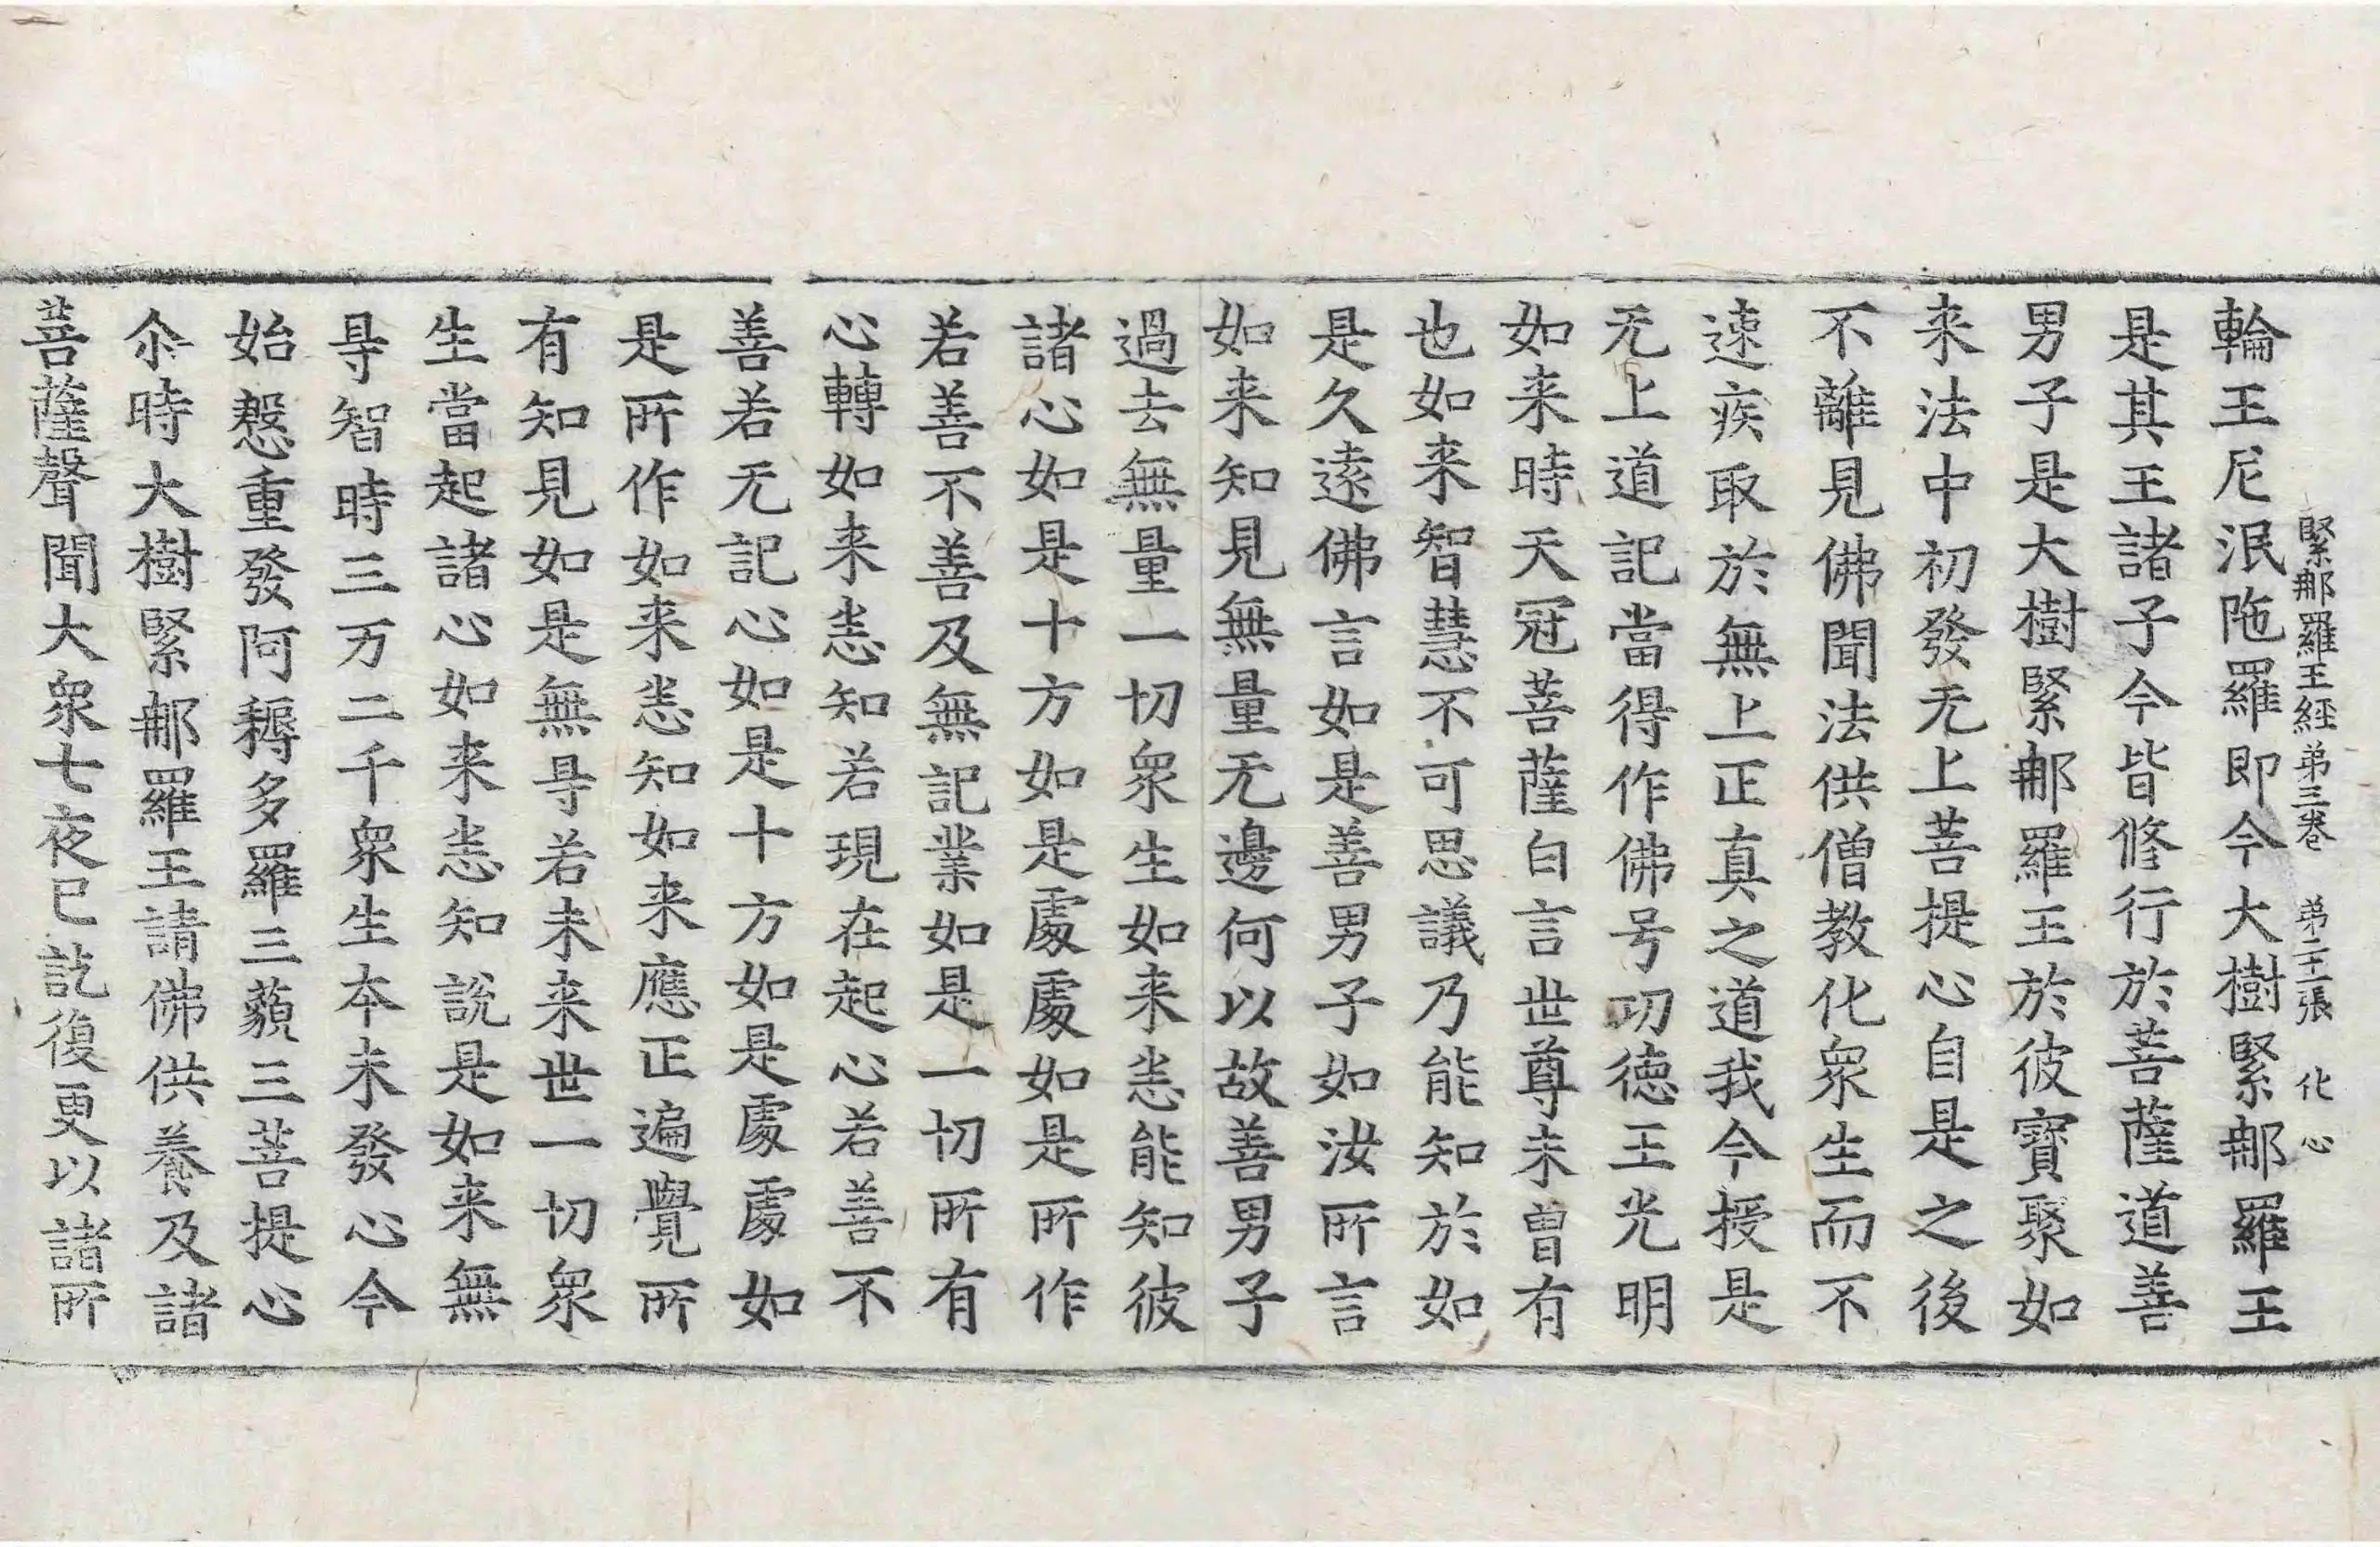 緊那羅王經苐三卷　苐二十二張　化心
輪王尼泯陁羅即今大樹緊那羅王
是其王諸子今皆修行於菩薩道善
男子是大樹緊那羅王於彼寳聚如
来法中初發无上菩提心自是之後
不離見佛聞法供僧教化衆生而不
速疾取於無上正真之道我今授是
无上道記當得作佛号功徳王光明
如来時天冠菩薩白言世尊未曽有
也如来智慧不可思議乃能知於如
是久遠佛言如是善男子如汝所言
如来知見無量无邊何以故善男子
過去無量一切衆生如来悉能知彼
諸心如是十方如是處處如是所作
若善不善及無記業如是一切所有
心轉如来悉知若現在起心若善不
善若无記心如是十方如是處處如
是所作如来悉知如来應正遍覺所
有知見如是無㝵若未来世一切衆
生當起諸心如来悉知說是如来無
㝵智時三万二千衆生本未發心今
始慇重發阿耨多羅三藐三菩提心
尒時大樹緊那羅王請佛供養及諸
菩薩聲聞大衆七夜已訖復更以諸所